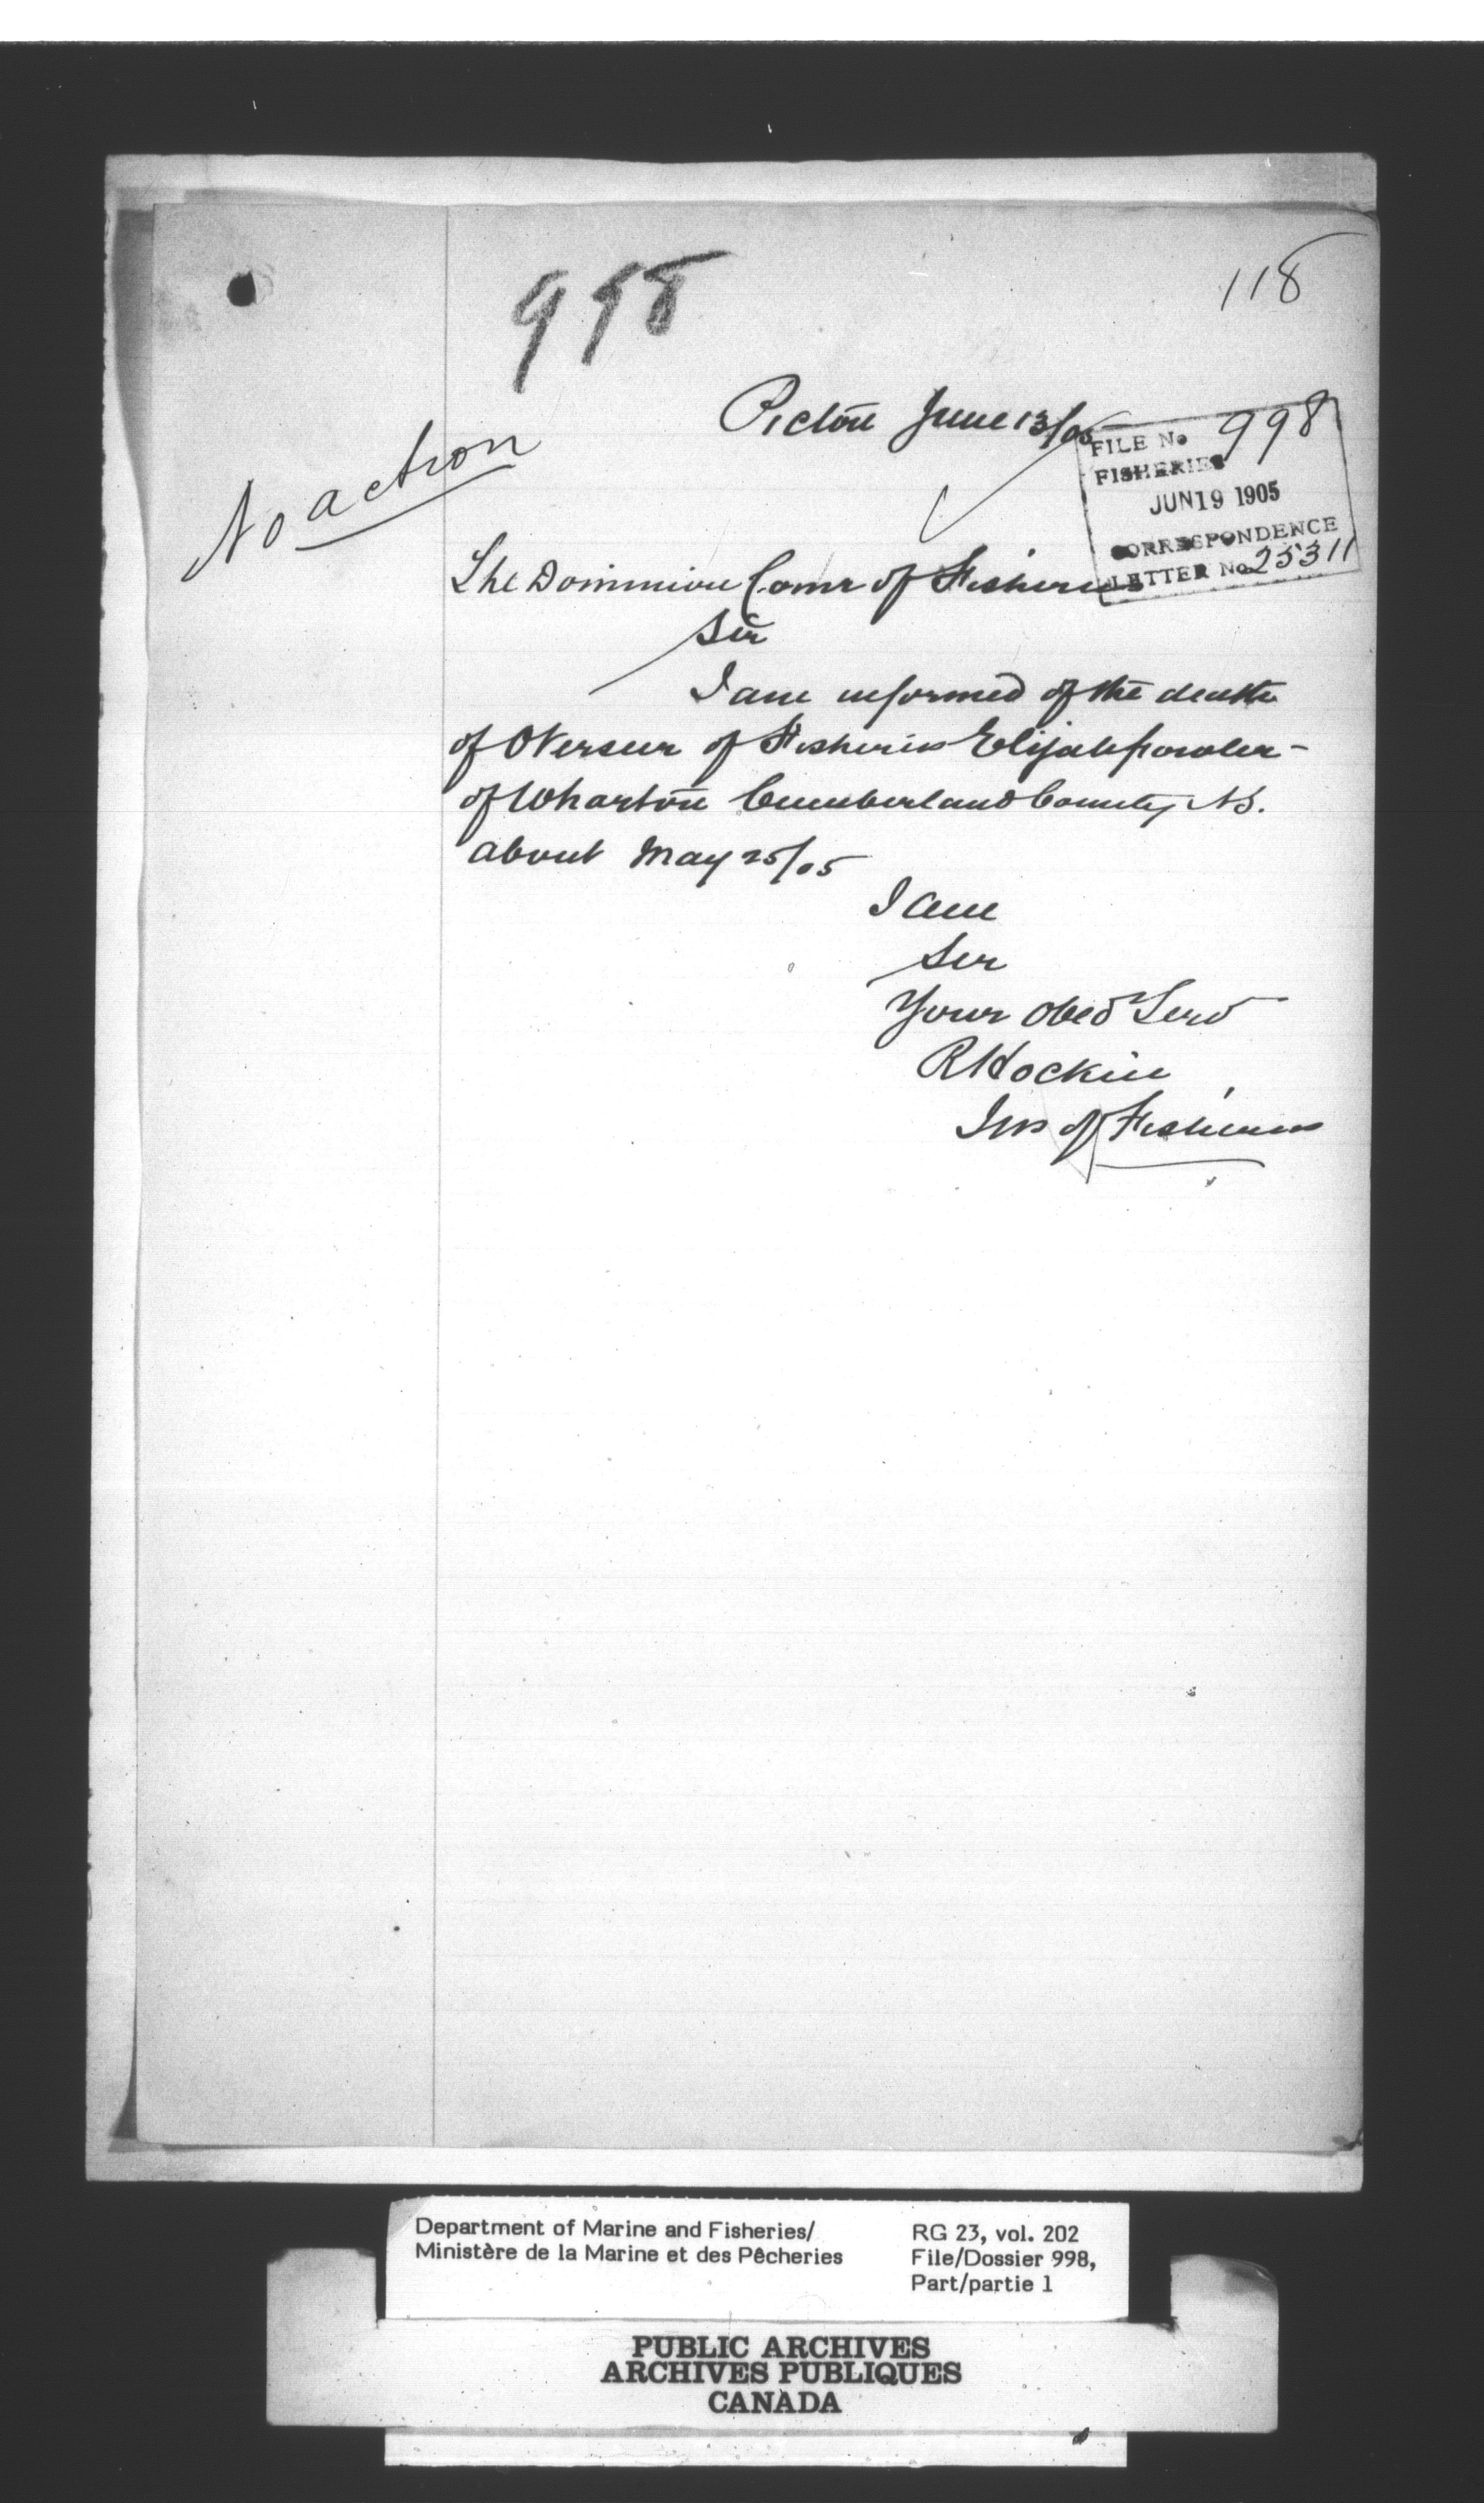 998
118
Pictou June 13/05
No action
FILE No 998
FISHERIES
JUN 19 1905
CORRESPONDENCE
LETTER No 25311
The Dominion Comr of Fisheries
Sir
I am informed of the death
of Overseer of Fisheries Elijah Fowler -
of Wharton Cumberland County NS.
about May 25/05
I am
Sir
Your Obed Servt
R Hockin
Ins of Fisheries
Department of Marine and Fisheries/
Ministère de la Marine et des Pêcheries
RG 23, vol. 202
File/Dossier 998,
Part/partie 1
PUBLIC ARCHIVES
ARCHIVES PUBLIQUES
CANADA